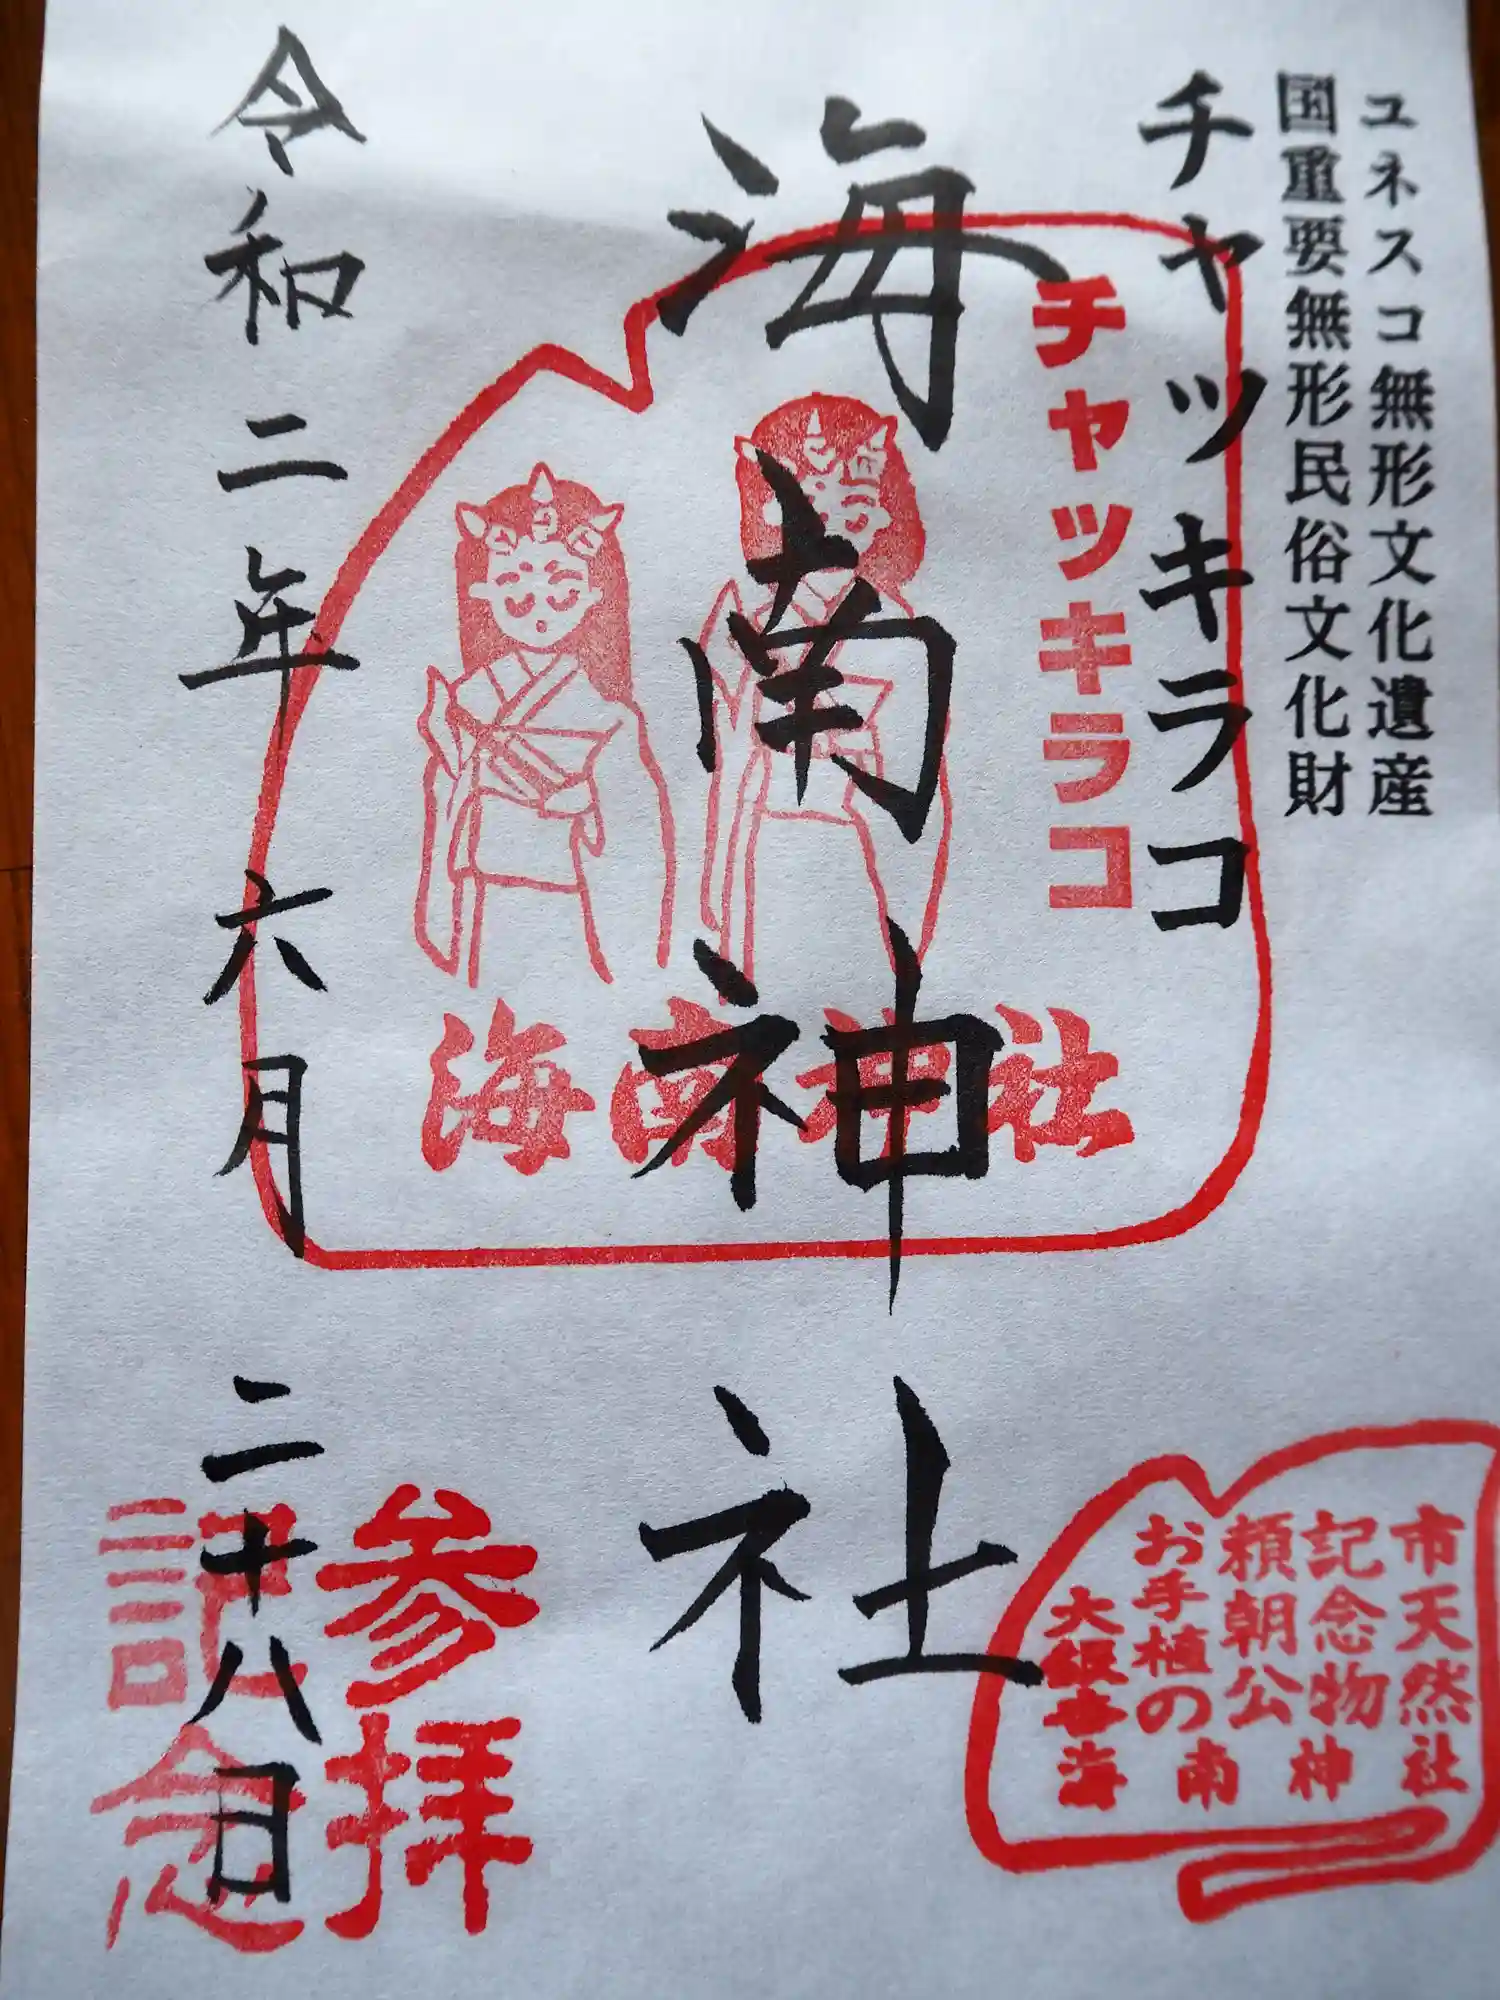 ユネスコ無形文化遺産
国重要無形民俗文化財
チャッキラコ
チャッキラコ
海南神社
海南神社
市天然
記念物
頼朝公
お手植の
大銀杏
海南神社
参拝
記念
令和二年六月二十八日